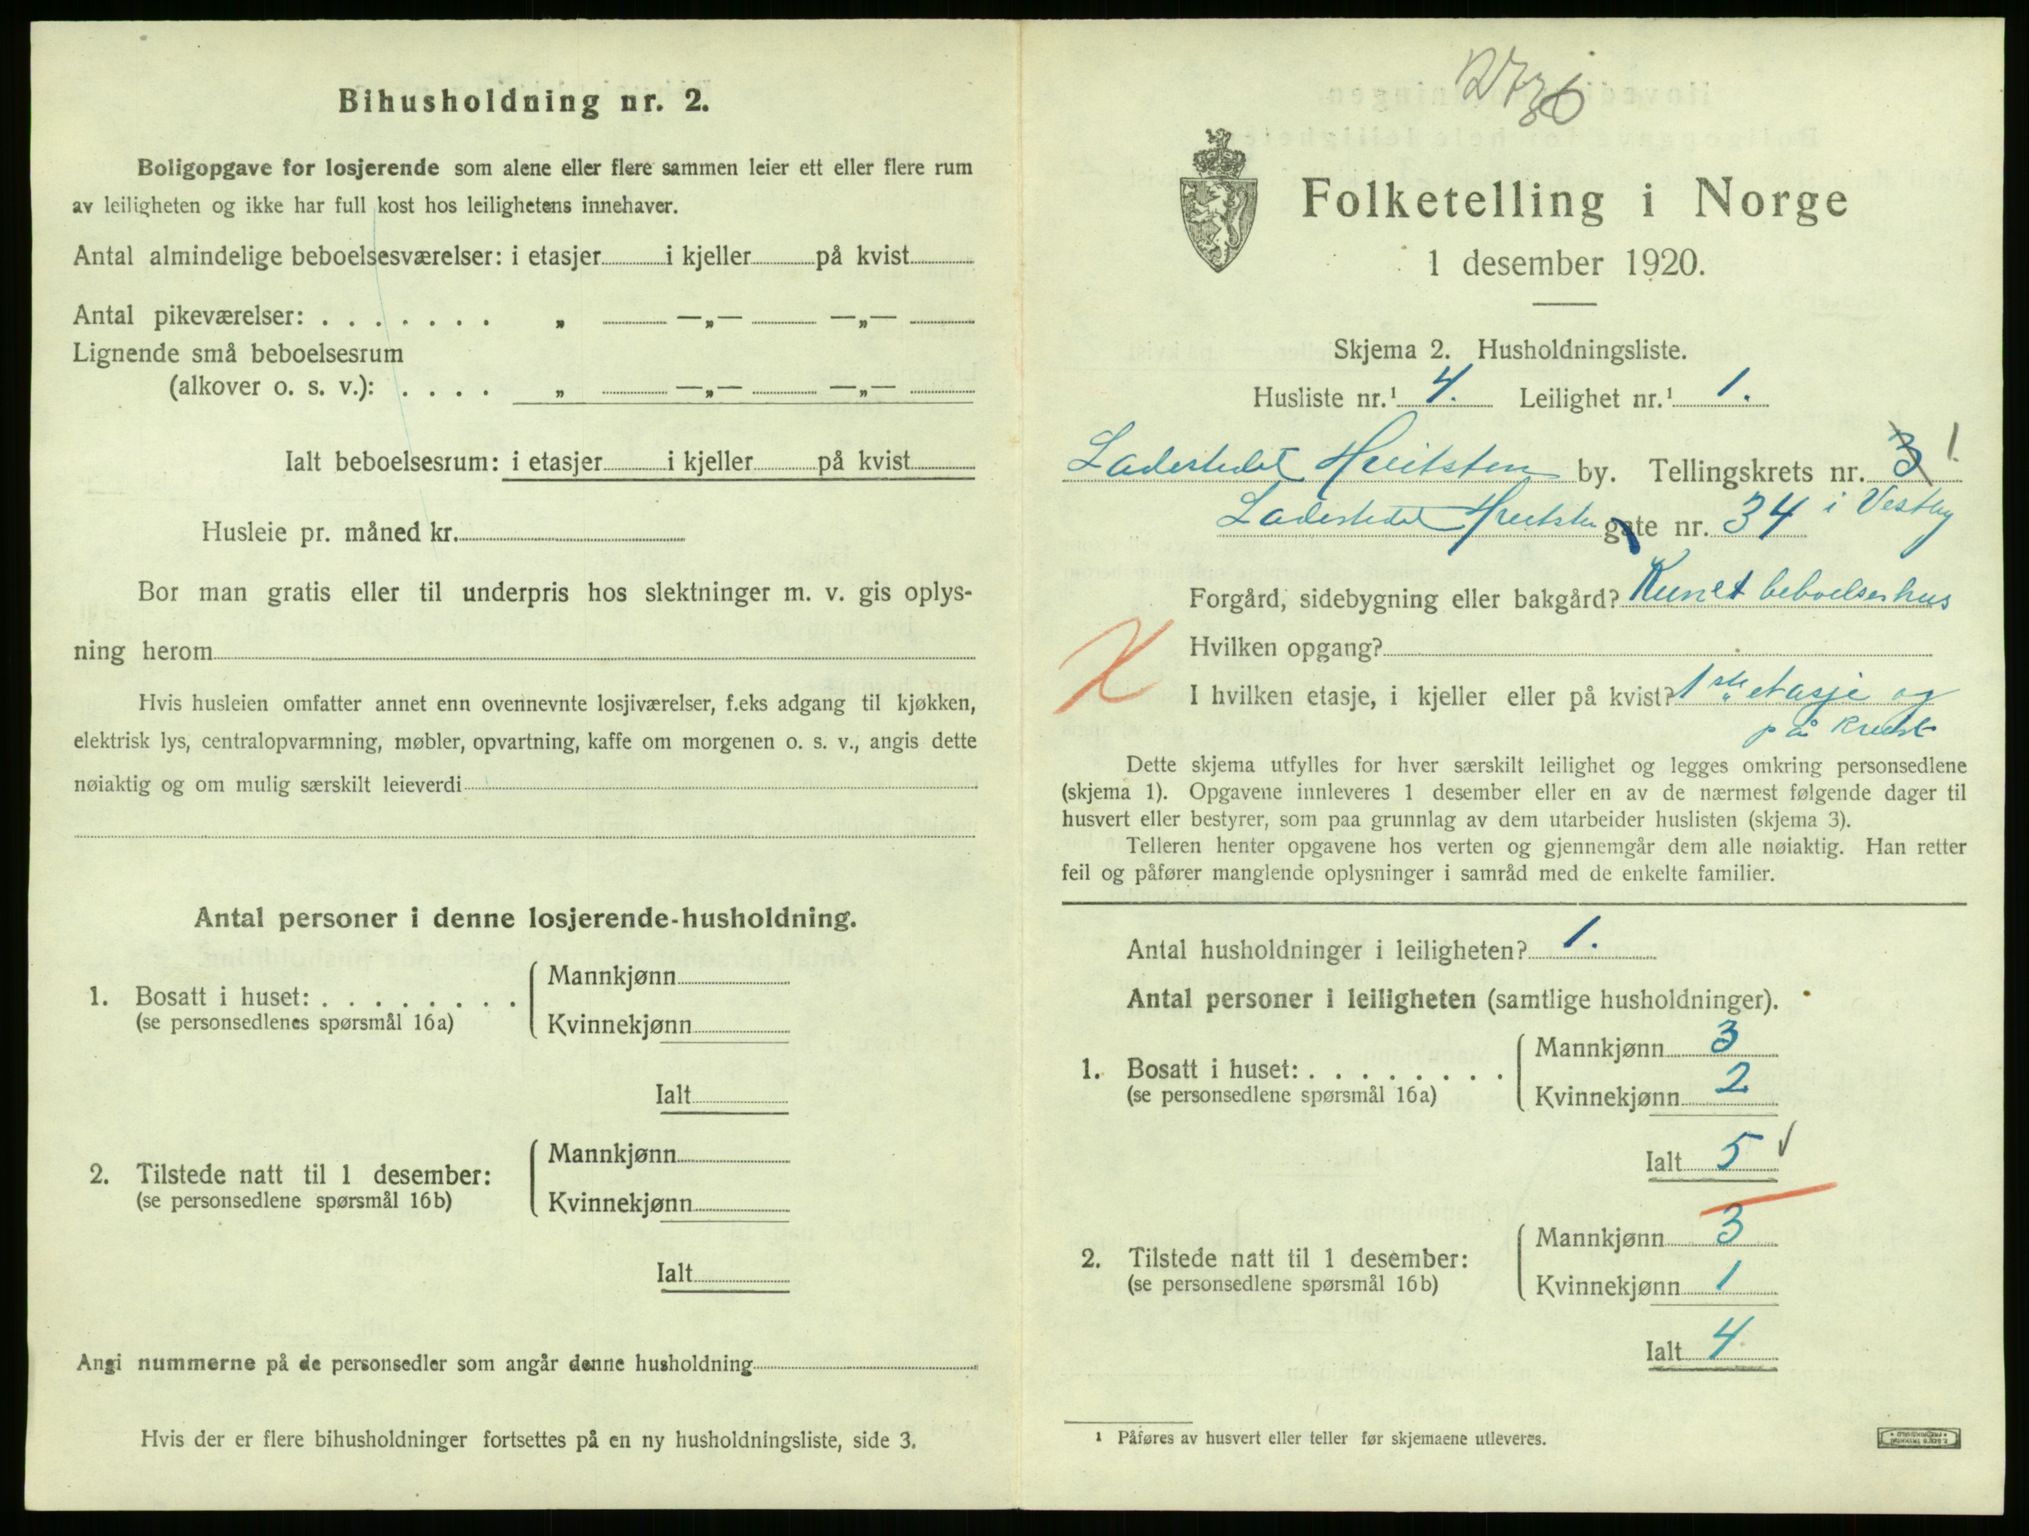 Bihusholdning nr. 2.
Boligopgave for losjerende som alene eller flere sammen leier ett eller flere rum
av leiligheten og ikke har full kost hos leilighetens innehaver.
Antal almindelige beboelsesværelser: i etasjer i kjeller på kvist
Antal pikeværelser: . . . . . . . „ —„— —„—
Lignende små beboelsesrum
(alkover o. s. v.): . . . . „ —„— —„—
Ialt beboelsesrum: i etasjer i kjeller på kvist
Husleie pr. måned kr.
Bor man gratis eller til underpris hos slektninger m. v. gis oplys-
ning herom
Hvis husleien omfatter annet enn ovennevnte losjiværelser, f.eks adgang til kjøkken,
elektrisk lys, centralopvarmning, møbler, opvartning, kaffe om morgenen o. s. v., angis dette
nøiaktig og om mulig særskilt leieverdi
Antal personer i denne losjerende-husholdning.
1. Bosatt i huset: . . . . . . . . Mannkjønn
(se personsedlenes spørsmål 16a)
Kvinnekjønn
Ialt
2. Tilstede natt til 1 desember: Mannkjønn
(se personsedlene spørsmål 16b)
Kvinnekjønn
Ialt
Angi nummerne på de personsedler som angår denne husholdning
Hvis der er flere bihusholdninger fortsettes på en ny husholdningsliste, side 3.
Folketelling i Norge
1 desember 1920.
Skjema 2. Husholdningsliste.
Husliste nr.¹ 4. Leilighet nr.¹ 1.
Ladestedet Hvitsten by. Tellingskrets nr. 3 1.
Ladestedet Hvitsten gate nr. 34 i Vestby
Forgård, sidebygning eller bakgård? Kun et beboelseshus
Hvilken opgang?
I hvilken etasje, i kjeller eller på kvist? 1ste etasje og
på kvist
Dette skjema utfylles for hver særskilt leilighet og legges omkring personsedlene
(skjema 1). Opgavene innleveres 1 desember eller en av de nærmest følgende dager til
husvert eller bestyrer, som paa grunnlag av dem utarbeider huslisten (skjema 3).
Telleren henter opgavene hos verten og gjennemgår dem alle nøiaktig. Han retter
feil og påfører manglende oplysninger i samråd med de enkelte familier.
Antal husholdninger i leiligheten? 1.
Antal personer i leiligheten (samtlige husholdninger).
1. Bosatt i huset: . . . . . . . . Mannkjønn 3
(se personsedlene spørsmål 16a)
Kvinnekjønn 2
Ialt 5 ✓
2. Tilstede natt til 1 desember: Mannkjønn 3
(se personsedlene spørsmål 16b)
Kvinnekjønn 1
Ialt 4
¹ Påføres av husvert eller teller før skjemaene utleveres.